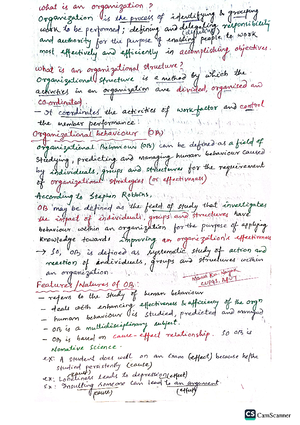 what is an organization ?
Organization is the process of identifying & grouping
work to be performed; defining and delegating responsibility
and authority for the purpose of enabling people to work
most effectively and efficiently in accomplishing objectives.
what is an organizational structure ?
Organizational structure is a method by which the
activities in an organization are divided, organized and
co-ordinated.
- It coordinates the activities of work-factor and control
the member performance.
Organizational behaviour (OB)
Organizational Behaviour (OB) can be defined as a field of
studying, predicting and managing human behaviour caused
by individuals, groups and structures for the requirement
of organizational strategies (or effectiveness)
According to Stephen Robbins,
OB may be defined as the field of study that investigates
the impact of individuals, groups and structures have
behaviour within an organization for the purpose of applying
knowledge towards improving an organization's effectiveness
→ So, OB is defined as systematic study of action and
reaction of individuals, groups and structures within
an organization.
Features/Natures of OB:
- refers to the study of human behaviour
- deals with enhancing effectiveness & efficiency of the orgn
- human behaviour is studied, predicted and managed
- OB is a multidisciplinary subject.
- OB is based on cause-effect relationship. So OB is
Normative Science.
ex: A student does well on an exam (effect) because he/she
studied persistently (cause)
ex: Loneliness leads to depression (effect)
(cause)
ex: Insulting someone can lead to an argument
(cause) (effect)
CS CamScanner